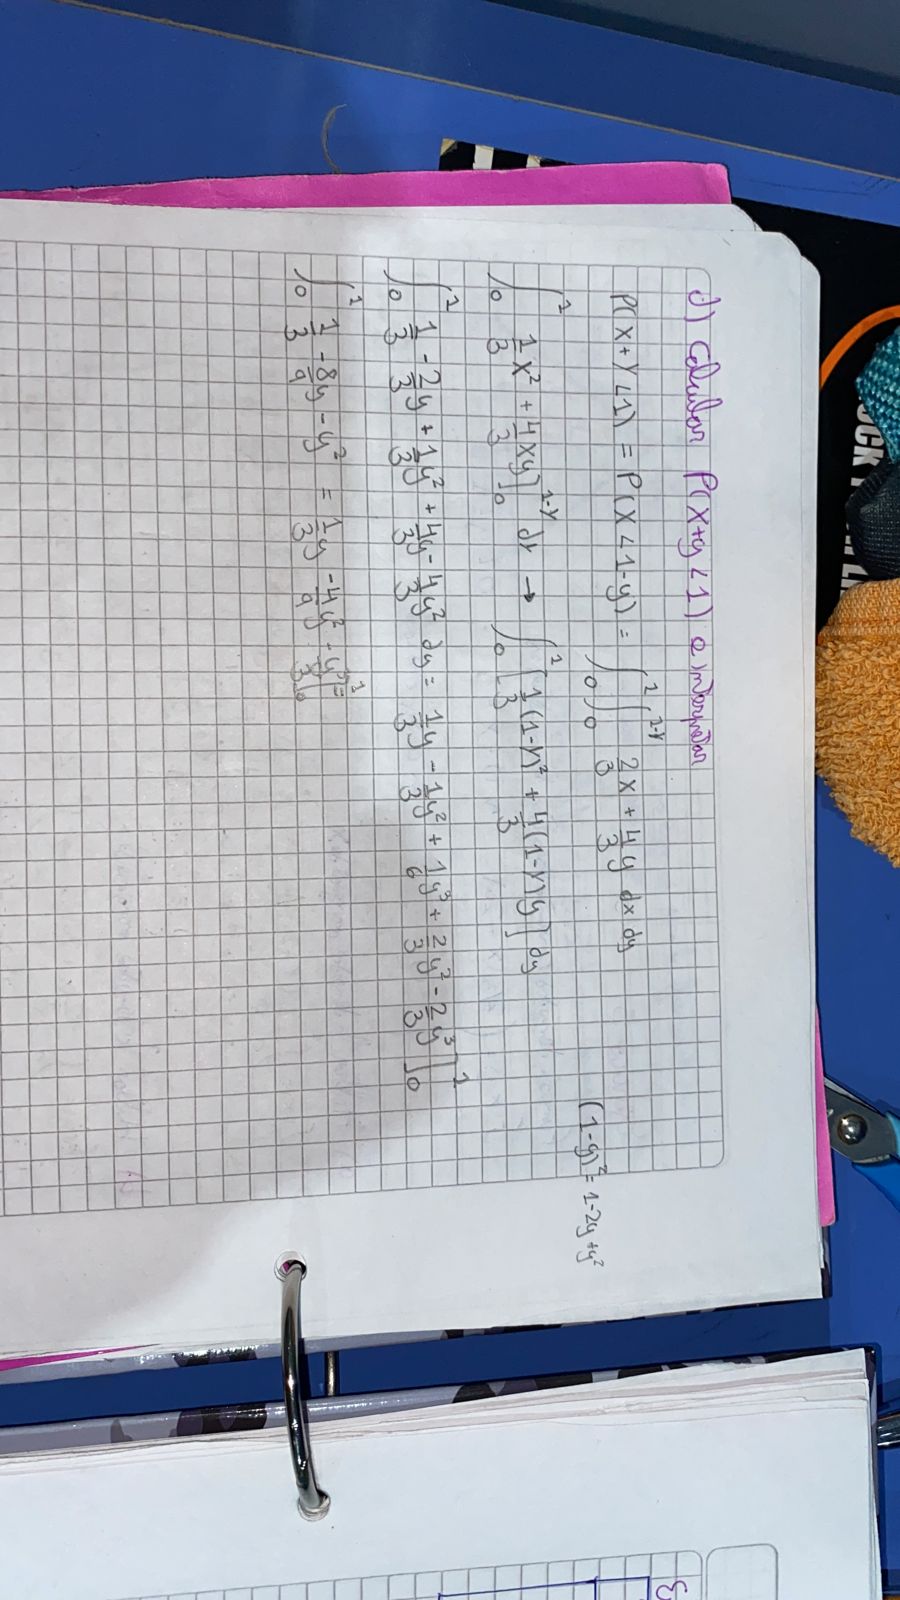 OCK
d) Calcular P(X+y<1) e interpretar
P(X+Y<1) = P(X<1-y) = ∫₀¹ ∫₀^(1-Y) 2/3 x + 4/3 y dx dy
(1-y)² = 1-2y+y²
∫₀¹ 1/3 x² + 4/3 xy]₀^(1-Y) dy → ∫₀¹ [1/3 (1-Y)² + 4/3 (1-Y)y] dy
∫₀¹ 1/3 - 2/3 y + 1/3 y² + 4/3 y - 4/3 y² dy = 1/3 y - 1/3 y² + 1/6 y³ + 2/3 y² - 2/3 y³]₀¹
∫₀¹ 1/3 - 8/9 y - y² = 1/3 y - 4/9 y² - y³/3]₀¹ =